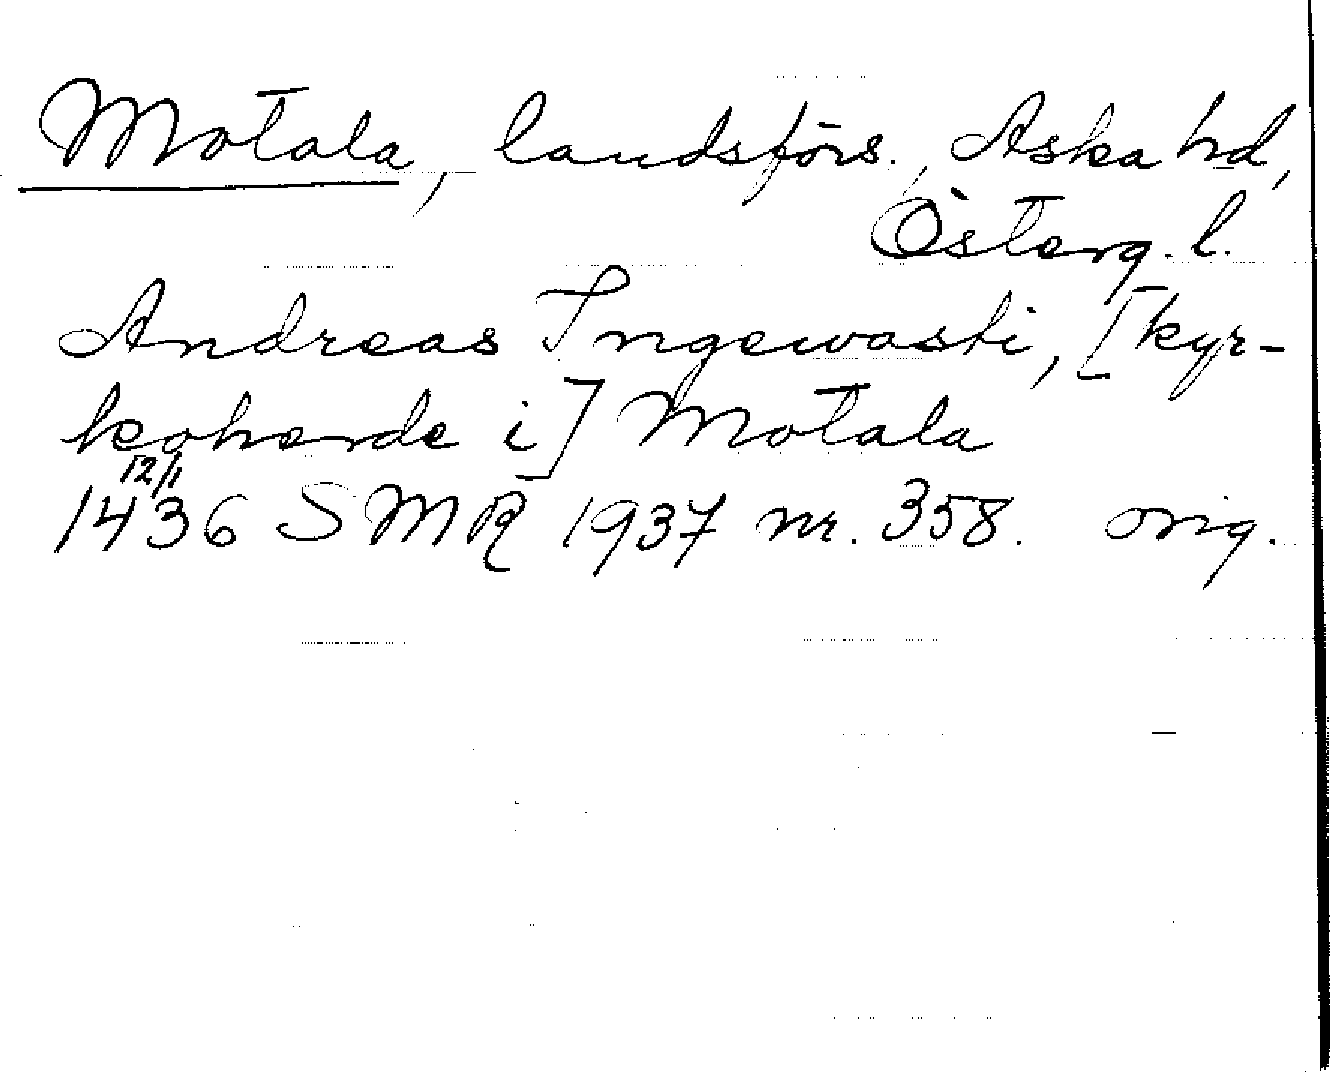 Motala, landsförs., Aska hd,
Österg. l.
Andreas Ingewasti, [kyr-
koherde i] Motala
12/1
1436 SMR 1937 nr. 358. orig.